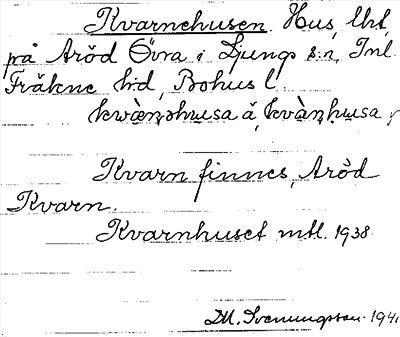 Kvarnehusen. Hus, lht,
på Aröd Övra i Ljungs s:n, Inl.
Fräkne h:d, Bohus l.
kwàṇəhusa ă, kvàṇhusa,
Kvarn finnes, Aröd
Kvarn.
Kvarnhuset mtl. 1938.
D.M. Svenungsson. 1941